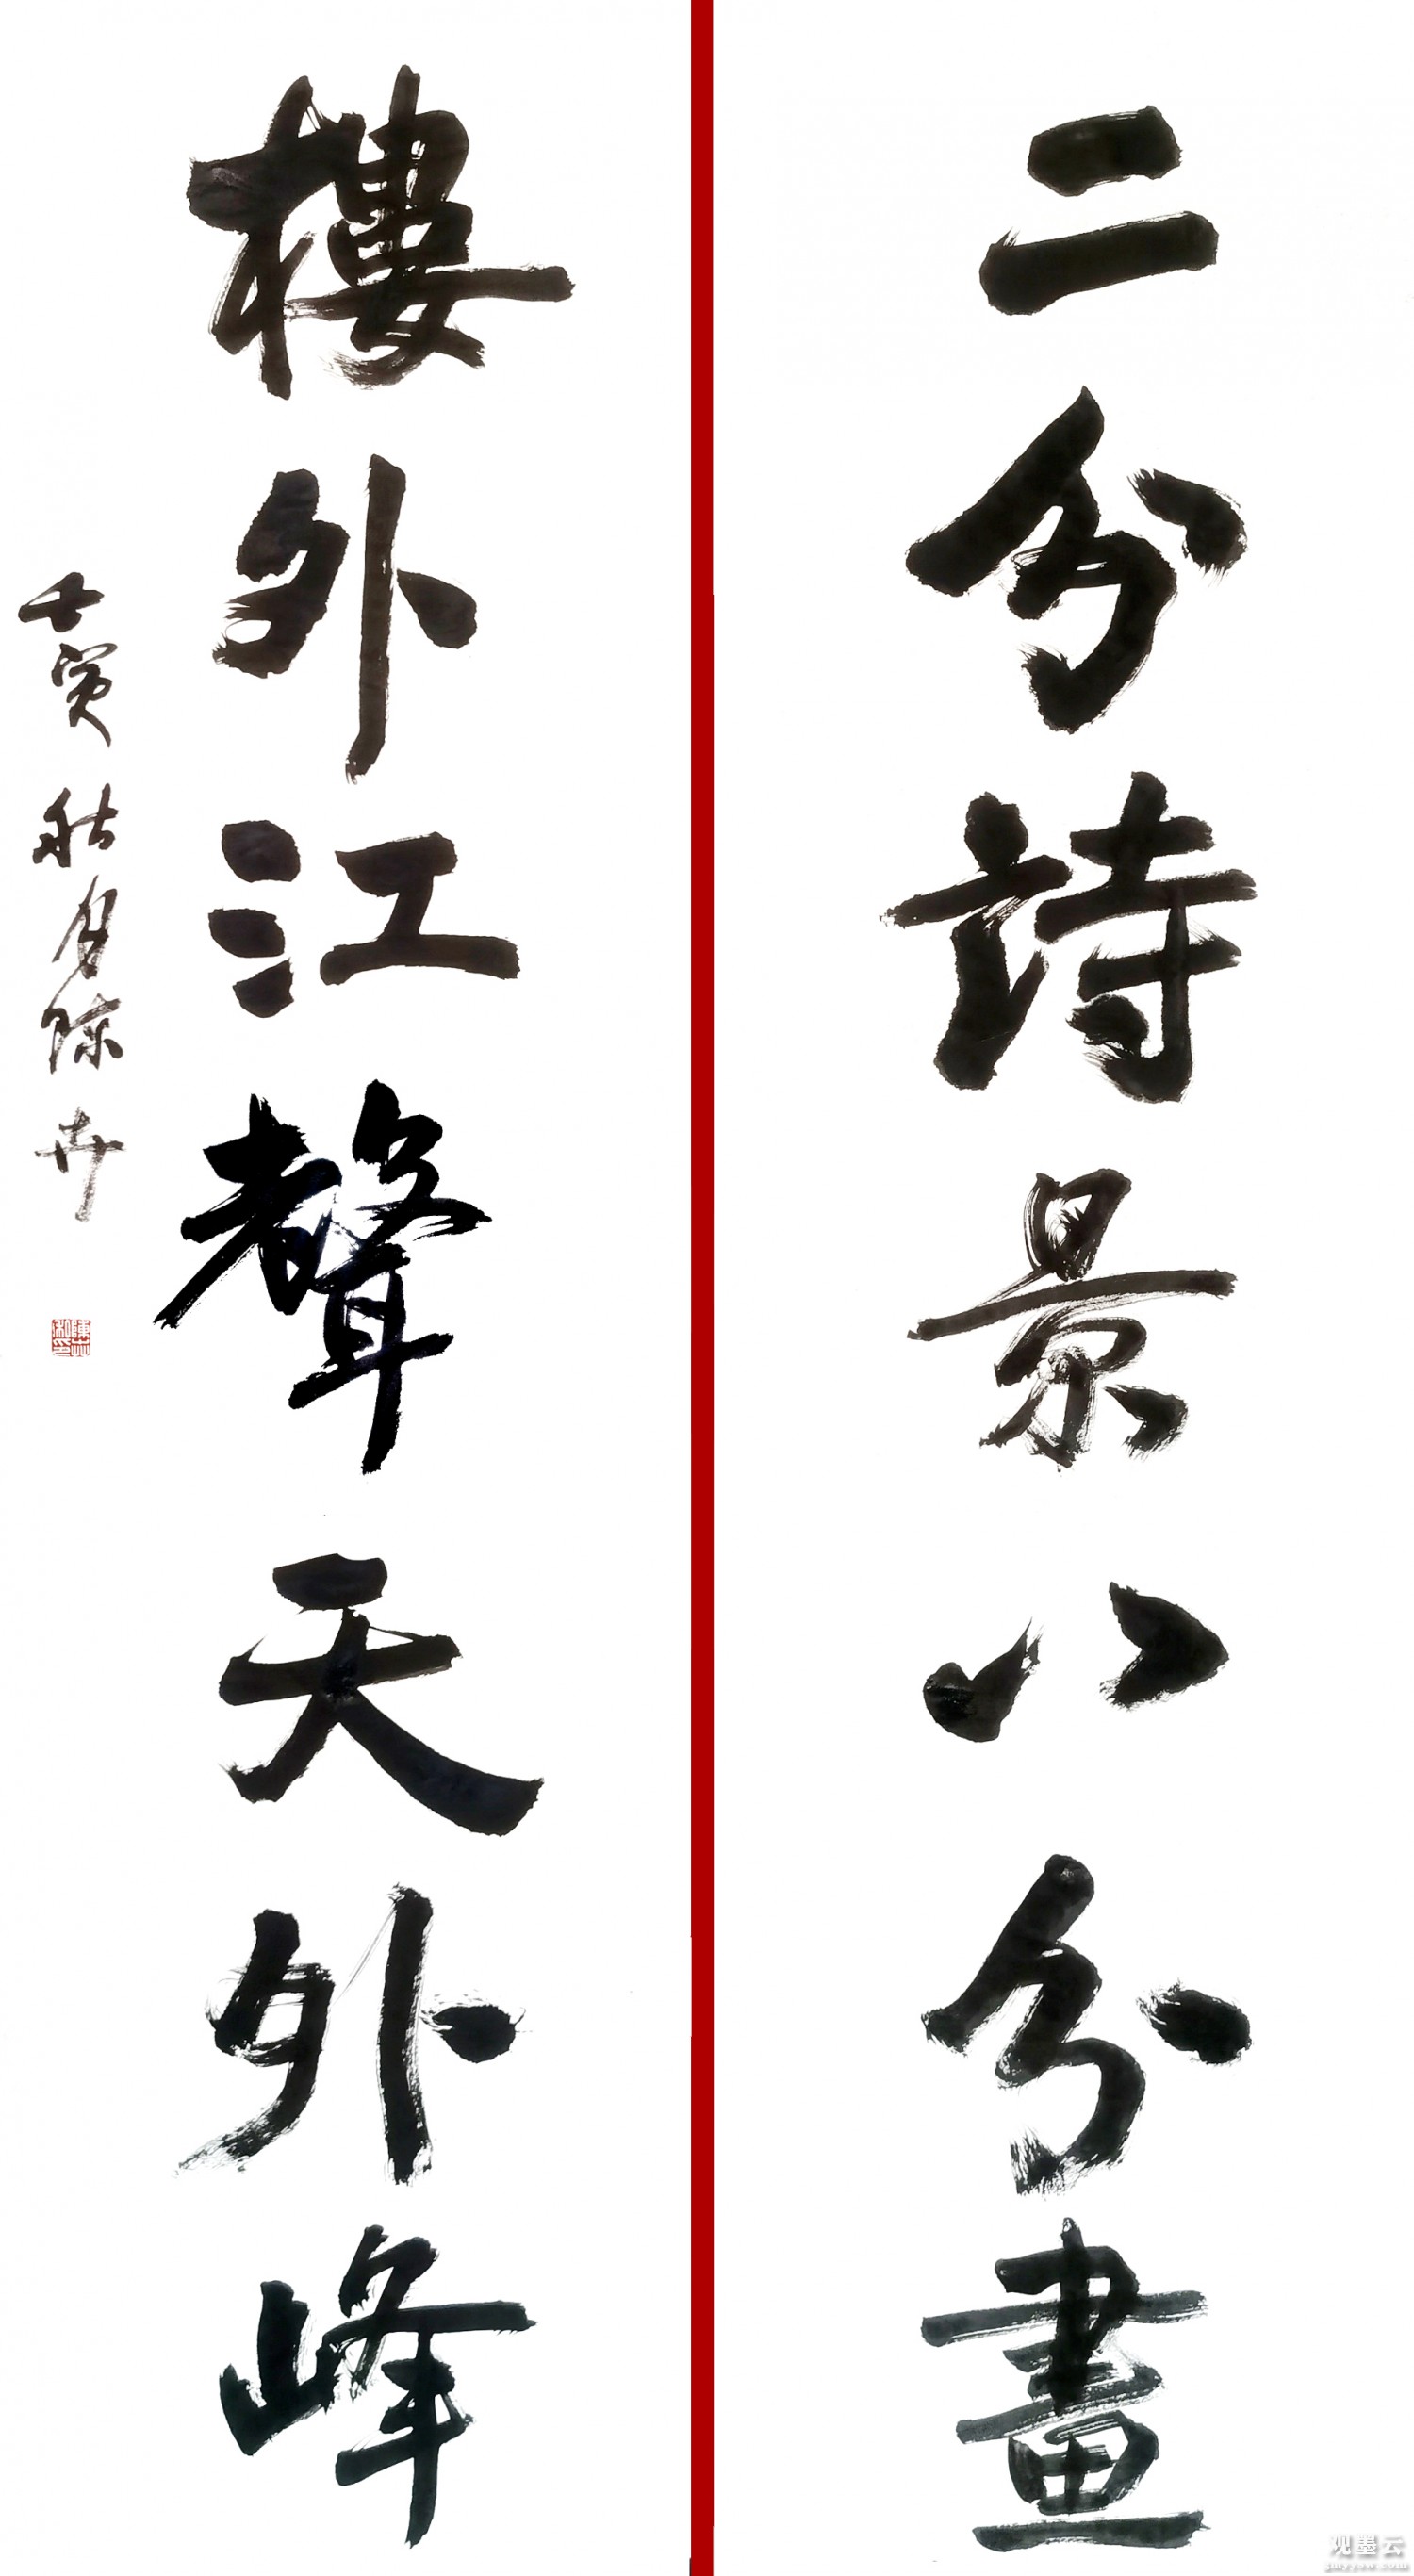 二分詩景八分畫
樓外江聲天外峰
壬寅秋月陈卉
观墨云